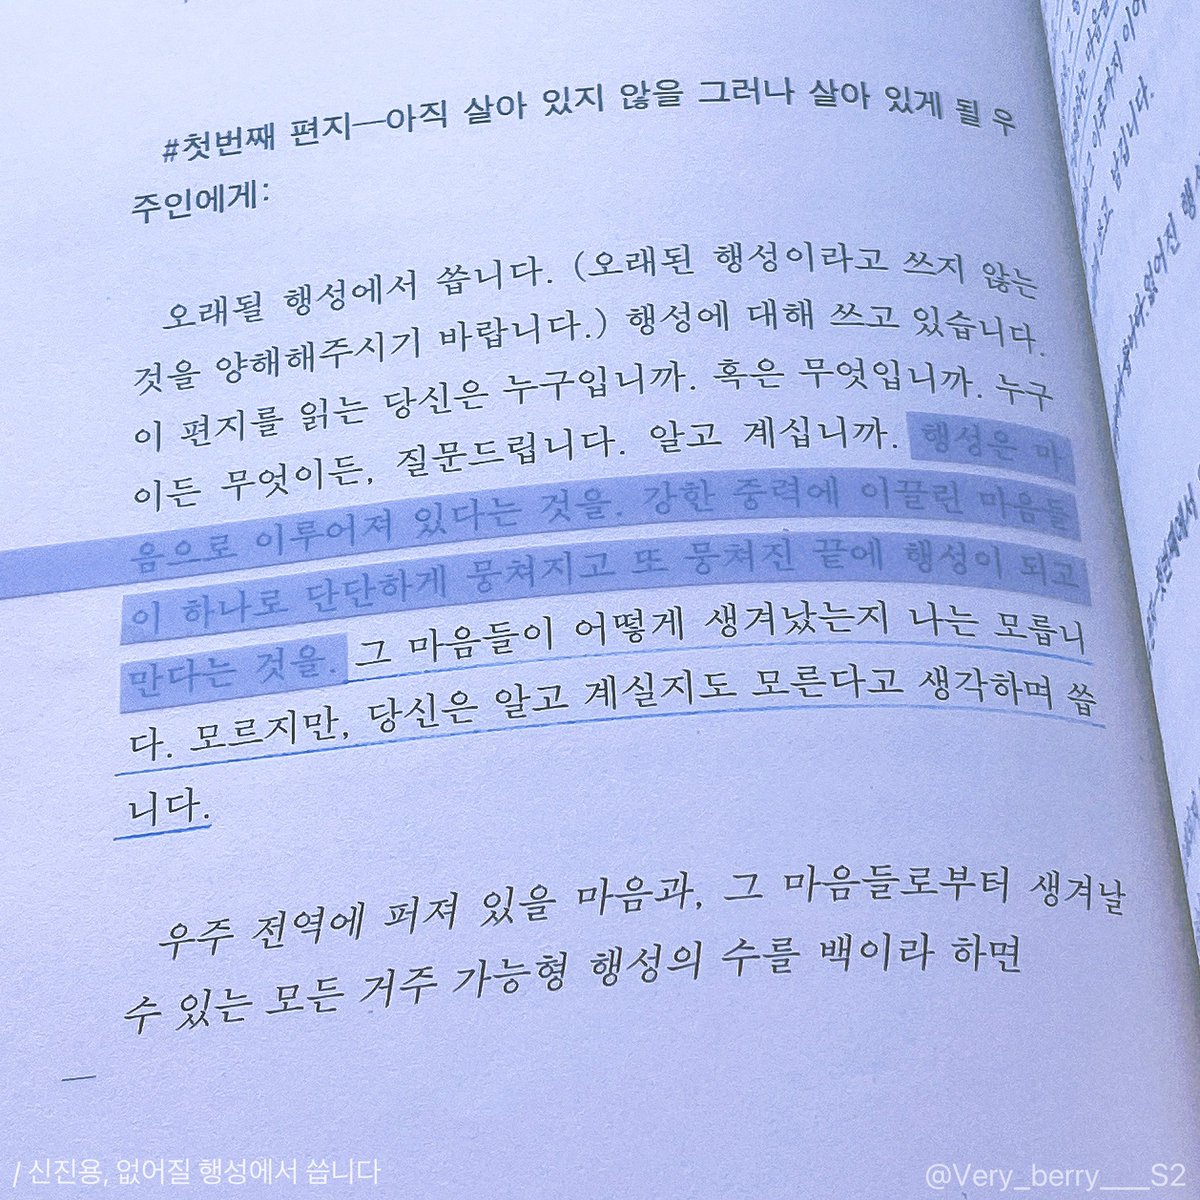 #첫번째 편지—아직 살아 있지 않을 그러나 살아 있게 될 우
주인에게:
오래될 행성에서 씁니다. (오래된 행성이라고 쓰지 않는
것을 양해해주시기 바랍니다.) 행성에 대해 쓰고 있습니다.
이 편지를 읽는 당신은 누구입니까. 혹은 무엇입니까. 누구
이든 무엇이든, 질문드립니다. 알고 계십니까. 행성은 마
음으로 이루어져 있다는 것을. 강한 중력에 이끌린 마음들
이 하나로 단단하게 뭉쳐지고 또 뭉쳐진 끝에 행성이 되고
만다는 것을. 그 마음들이 어떻게 생겨났는지 나는 모릅니
다. 모르지만, 당신은 알고 계실지도 모른다고 생각하며 씁
니다.
우주 전역에 퍼져 있을 마음과, 그 마음들로부터 생겨날
수 있는 모든 거주 가능형 행성의 수를 백이라 하면
/ 신진용, 없어질 행성에서 씁니다
@Very_berry___S2